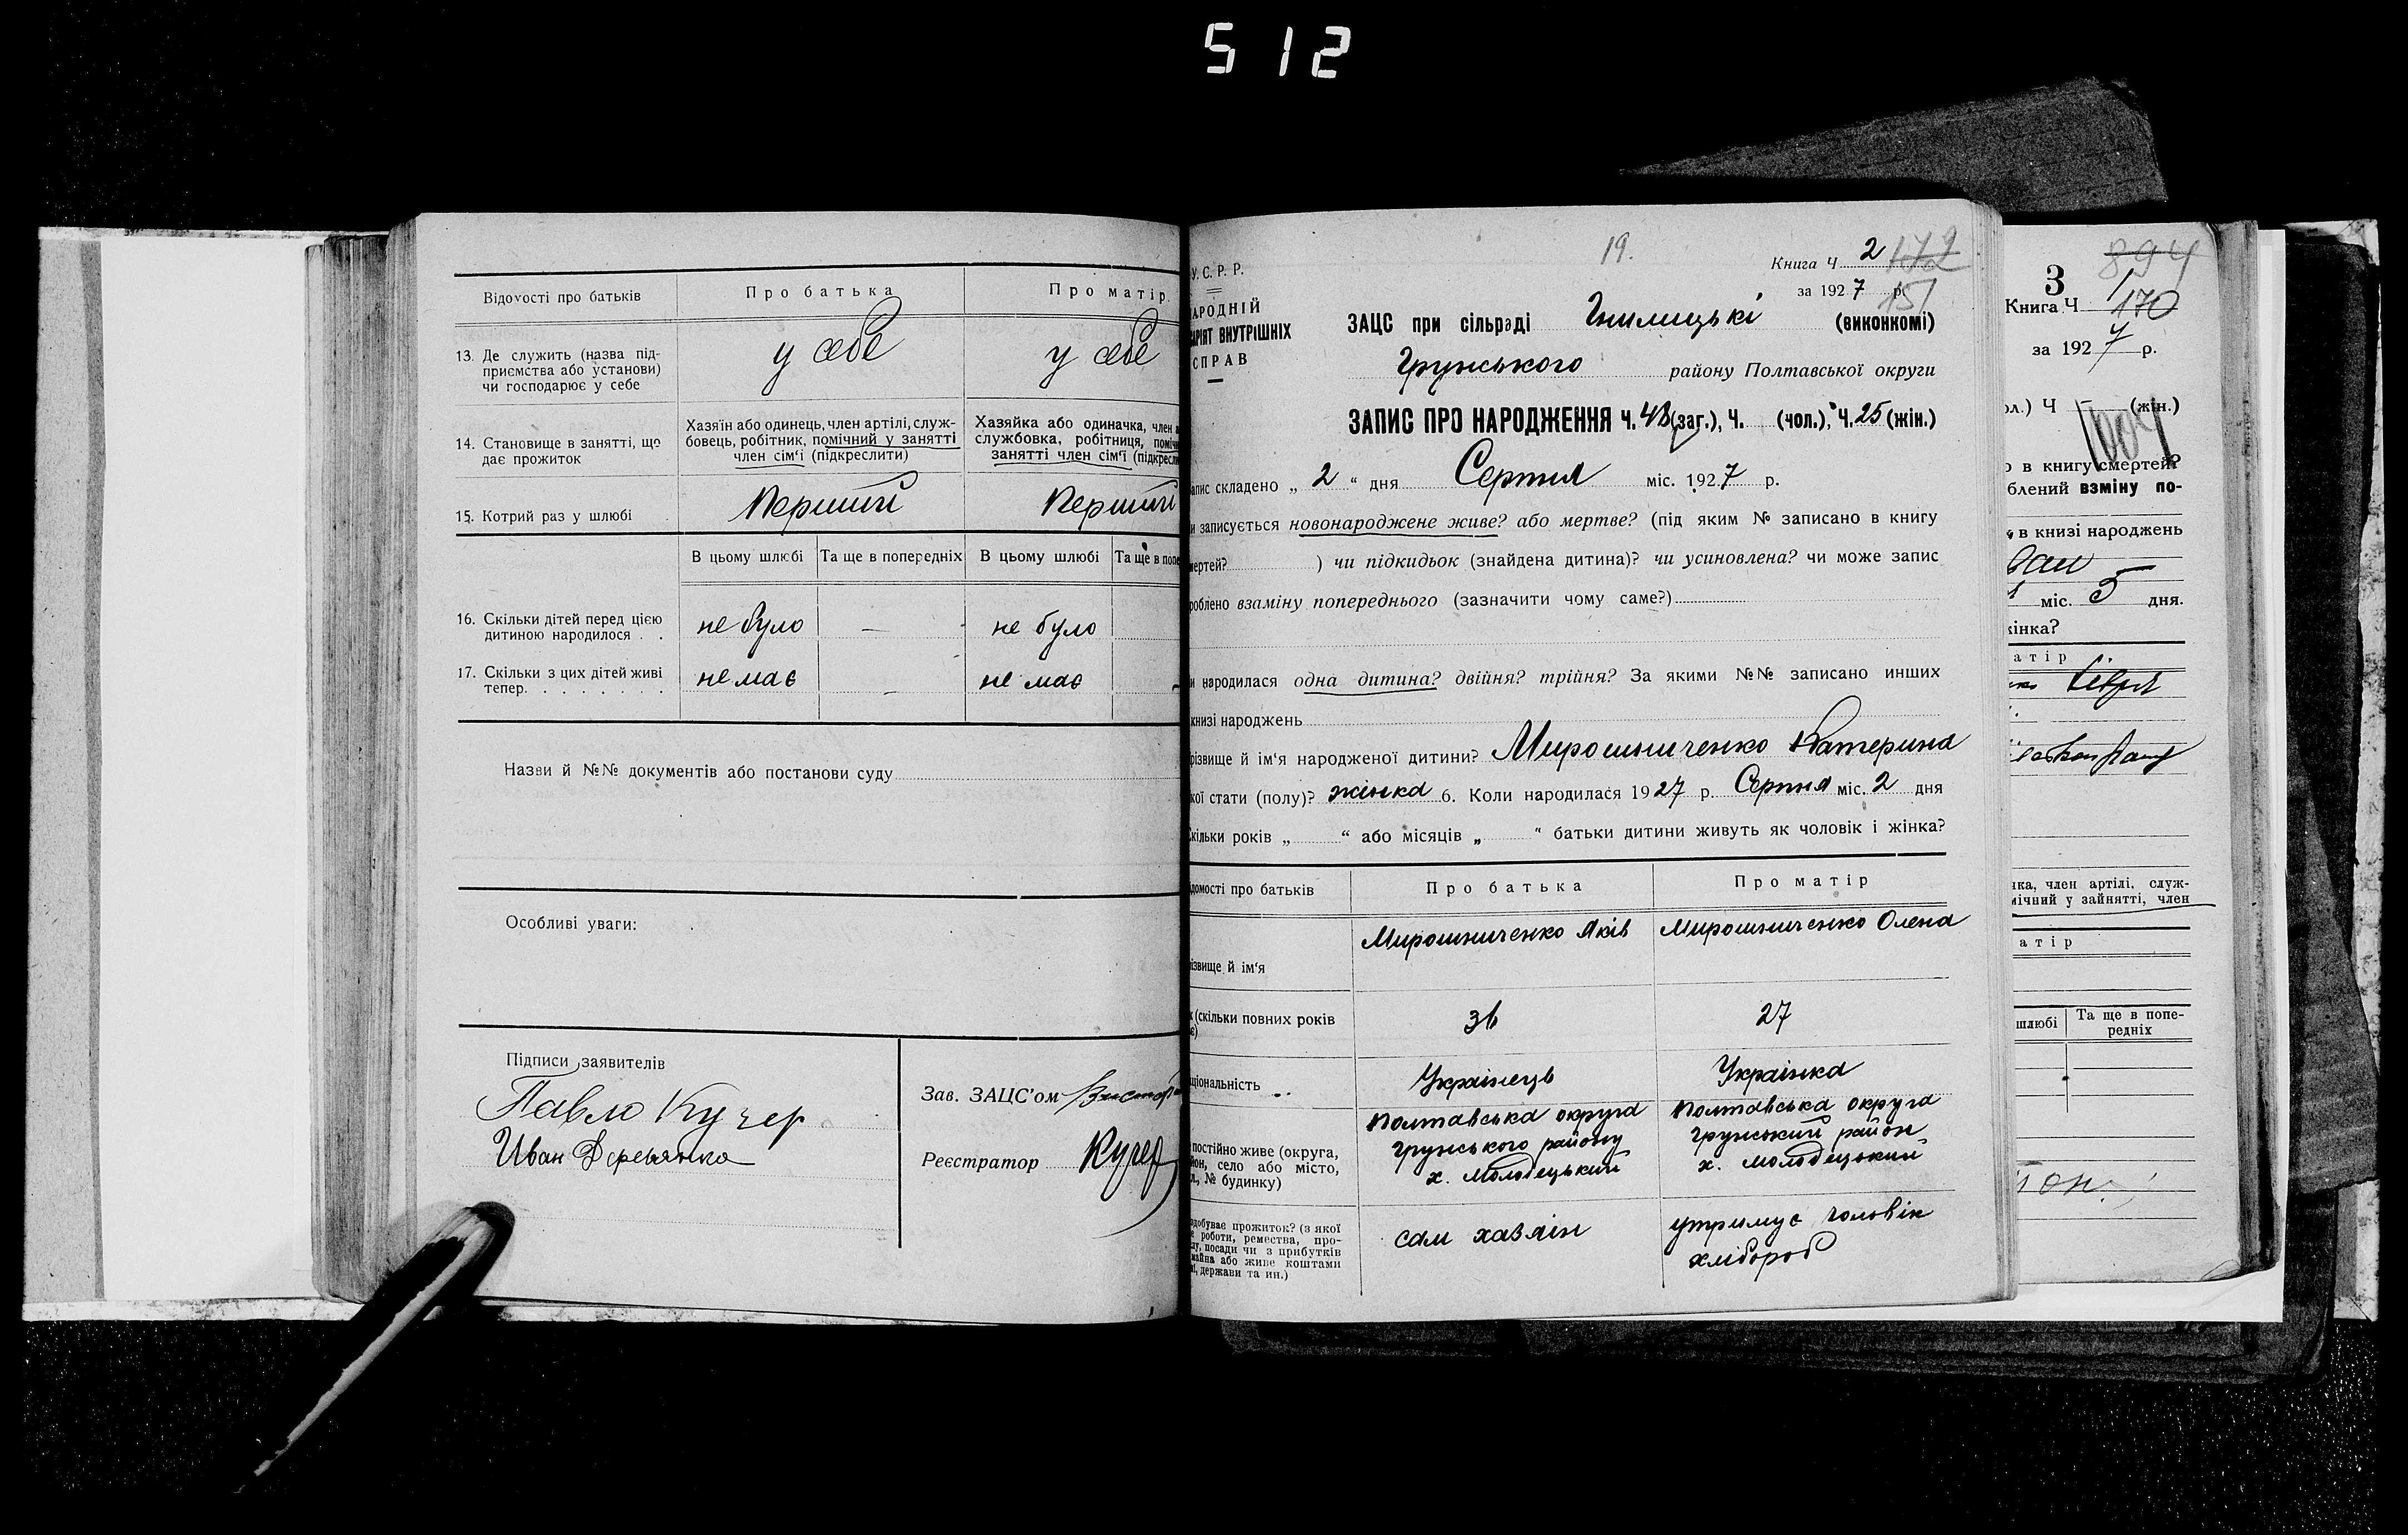 512
Відомості про батьків
Про батька
Про матір
13. Де служить (назва під-
приємства або установи)
чи господарює у себе
у себе
у себе
14. Становище в занятті, що
дає прожиток
Хазяїн або одинець, член артілі, служ-
бовець, робітник, помічний у занятті
член сім'ї (підкреслити)
Хазяйка або одиначка, член
службовка, робітниця,
занятті член сім'ї
15. Котрий раз у шлюбі
Перший
Перший
В цьому шлюбі
Та ще в попередніх
В цьому шлюбі
Та ще в попе
16. Скільки дітей перед цією
дитиною народилося . .
не було
—
не було
17. Скільки з цих дітей живі
тепер. . . . . . . .
не має
—
не має
Назви й №№ документів або постанови суду
Особливі уваги:
Підписи заявителів
Павло Кучер
Зав. ЗАЦС'ом
Реєстратор Кучер
У.С.Р.Р.
АРОДНІЙ
АРІЯТ ВНУТРІШНІХ
СПРАВ
19.
Книга Ч 2 172
за 1927 р. 151
ЗАЦС при сільраді Гнилицькі (виконкомі)
Грунського району Полтавської округи
ЗАПИС ПРО НАРОДЖЕННЯ Ч. 48 (заг.), Ч. (чол.), Ч. 25 (жін.)
апис складено „ 2 “ дня Серпня міс. 1927 р.
и записується новонароджене живе? або мертве? (під яким № записано в книгу
мертей? ) чи підкидьок (знайдена дитина)? чи усиновлена? чи може запис
роблено взаміну попереднього (зазначити чому саме?)
и народилася одна дитина? двійня? трійня? За якими №№ записано инших
книзі народжень
різвище й ім'я народженої дитини? Мирошниченко Катерина
кої стати (полу)? жінка 6. Коли народилася 1927 р. Серпня міс. 2 дня
кільки років „ “ або місяців „ “ батьки дитини живуть як чоловік і жінка?
домості про батьків
Про батька
Про матір
ізвище й ім'я
Мирошниченко Яків
Мирошниченко Олена
(скільки повних років
27
ціональність . .
Українець
Українка
постійно живе (округа,
йон, село або місто,
л., № будинку)
Полтавська округа
Грунського району
х. Молодецький
Полтавська округа
Грунський район
х. Молодецький
здобуває прожиток? (з якої
роботи, ремества, про-
су, посади чи з прибутків
майна або живе коштами
і, держави та ин.)
сам хазяїн
утримує чоловік
хлібороб
3
894
Книга Ч 170
за 1927 р.
ол.) Ч (жін.)
о в книгу смертей?
блений взміну по-
в книзі народжень
міс. 5 дня.
інка?
атір
чка, член артілі, служ-
мічний у зайнятті, член
атір
шлюбі
Та ще в попе-
редніх